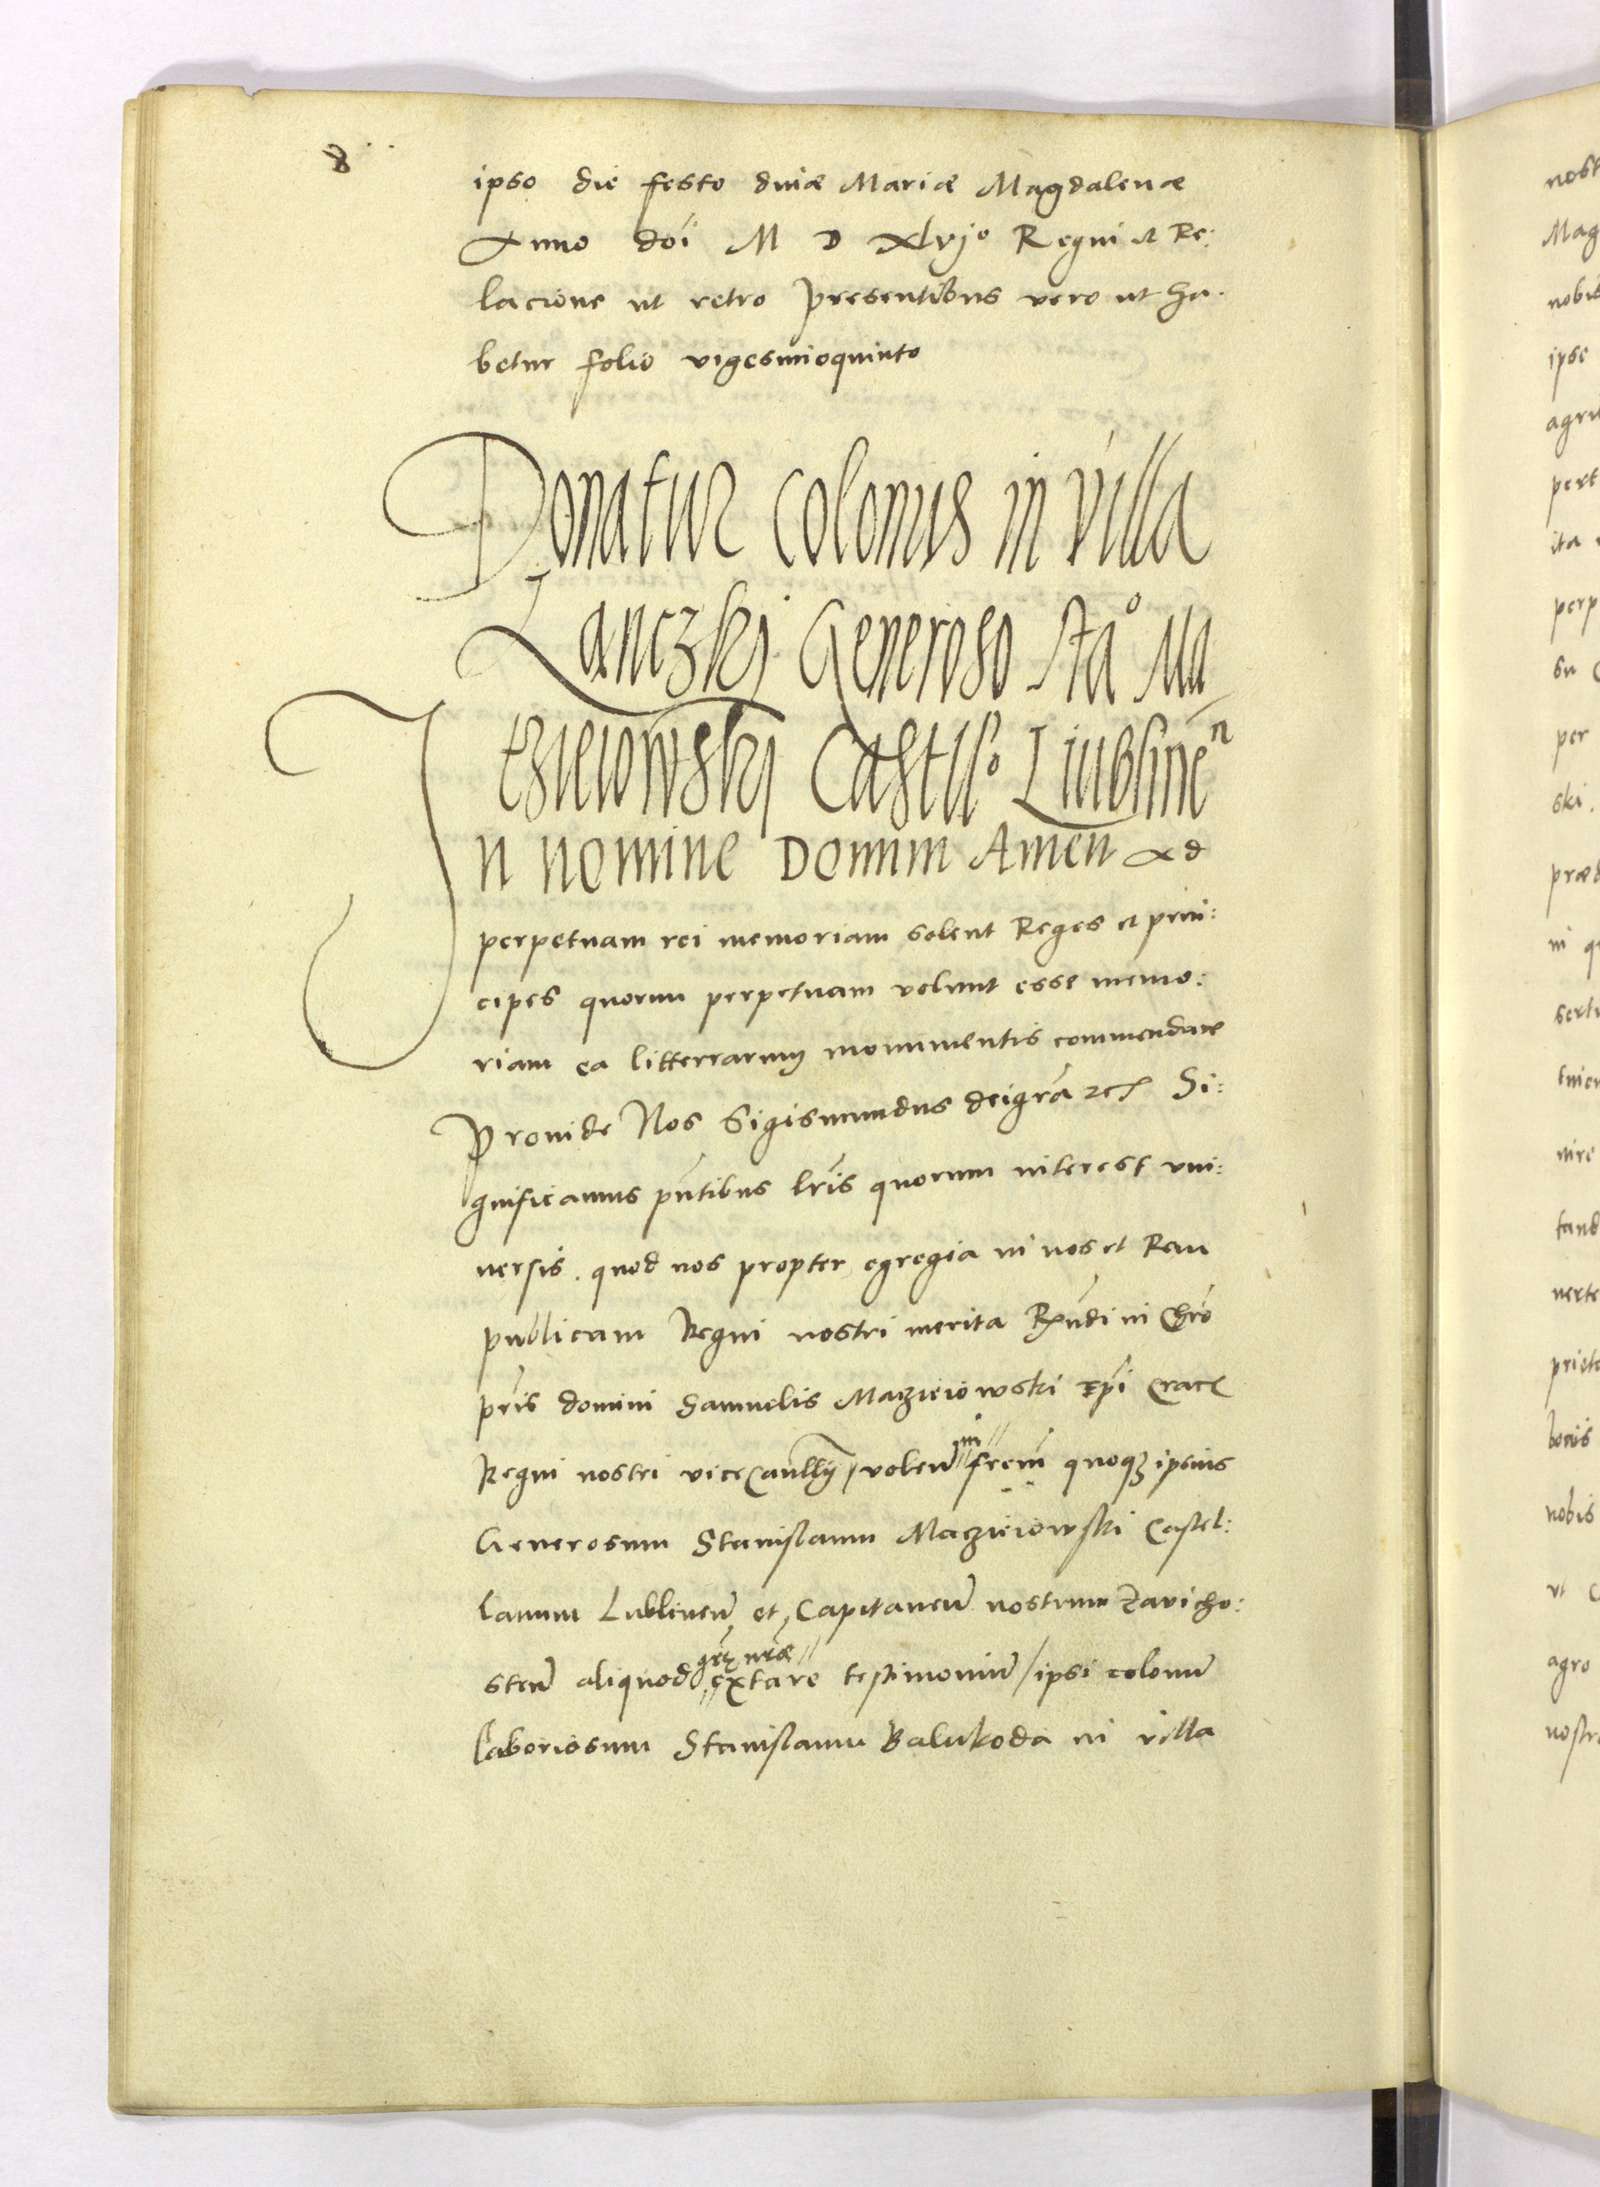 8
ipso die festo divæ Mariæ Magdalenæ
Anno doi M D xlvjo Regni et Re:
lacione ut retro presentibus vero ut ha.
betur folio vigesimoquinto
Donatur Colonus in villa
Lanczkj Generoso Sta° Ma
tzieiowskj Castll° Liublinen
In nomine Domini Amen ad
perpetuam rei memoriam solent Reges et prin:
cipes quorum perpetuam volunt esse memo:
riam ea litterrarum monumentis commendare
Provide Nos Sigismundus dei gra etc Si:
gnificamus pntibus lris quorum interest vni:
versis. quod nos propter egregia in nos et Rem
publicam Regni nostri merita Rndi in Chro
pris domini Samuelis Maczieiowski Epi Crac
Regni nostri viceCancllij / volen in frem quoqz ipsius
Generosum Stanislaum Maczieiowski Castel:
lanum Lublinen et Capitaneu nostrum Zavicho:
sten aliquod grę nræ extare testimoniu / ipsi colonu
laboriosum Stanislaum Balukoda in villa